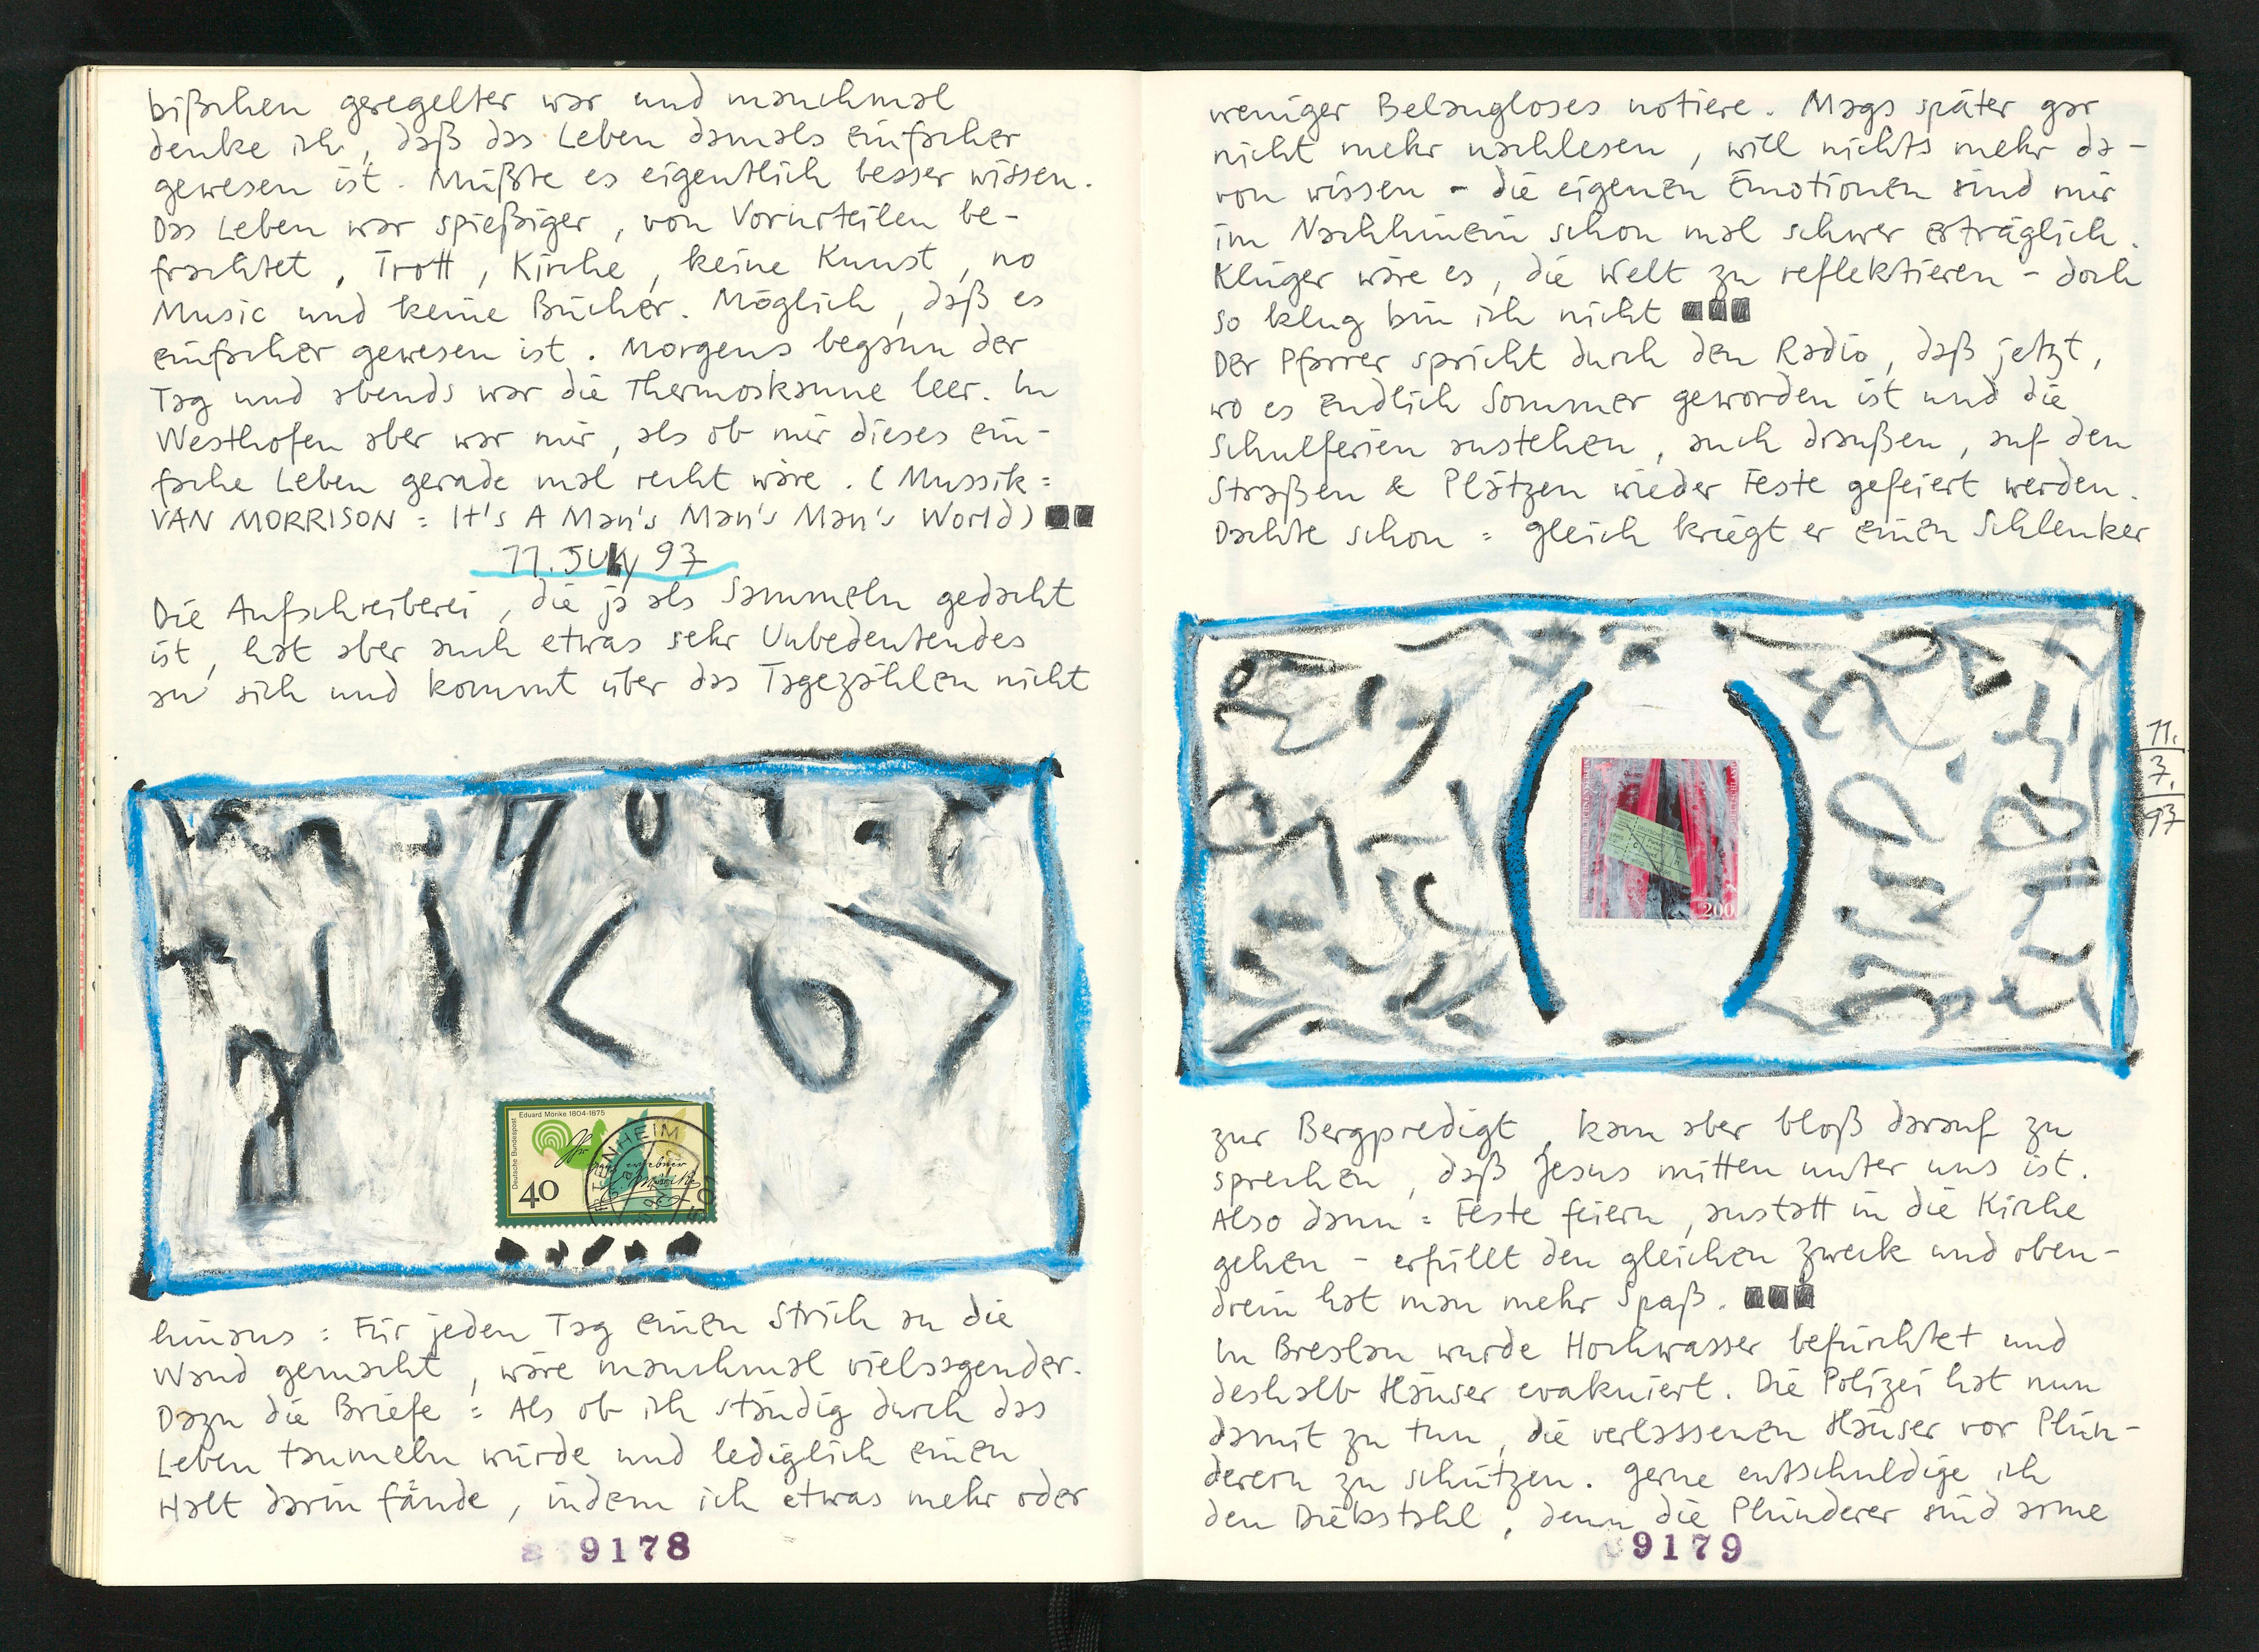 bißchen geregelter war und manchmal
denke ich, daß das Leben damals einfacher
gewesen ist. Müßte es eigentlich besser wissen.
Das Leben war spießiger, von Vorurteilen be-
frachtet, Trott, Kirche, keine Kunst, no
Music und keine Bücher. Möglich, daß es
einfacher gewesen ist. Morgens begann der
Tag und abends war die Thermoskanne leer. In
Westhofen aber war mir, als ob mir dieses ein-
fache Leben gerade mal recht wäre. (Mussik =
VAN MORRISON = It's A Man's Man's Man's World)
11. July 97
Die Aufschreiberei, die ja als Sammeln gedacht
ist, hat aber auch etwas sehr Unbedeutendes
an sich und kommt über das Tagezählen nicht
Eduard Mörike 1804-1875
Deutsche Bundespost
40
hinaus = Für jeden Tag einen Strich an die
Wand gemacht, wäre manchmal vielsagender.
Dazu die Briefe = Als ob ich ständig durch das
Leben taumeln würde und lediglich einen
Halt darin fände, indem ich etwas mehr oder
9178
weniger Belangloses notiere. Mags später gar
nicht mehr nachlesen, will nichts mehr da-
von wissen - die eigenen Emotionen sind mir
im Nachhinein schon mal schwer erträglich.
Klüger wäre es, die Welt zu reflektieren - doch
so klug bin ich nicht
Der Pfarrer spricht durch den Radio, daß jetzt,
wo es endlich Sommer geworden ist und die
Schulferien anstehen, auch draußen, auf den
Straßen & Plätzen wieder Feste gefeiert werden.
Dachte schon = gleich kriegt er einen Schlenker
200
11.
7.
97
zur Bergpredigt, kam aber bloß darauf zu
sprechen, daß Jesus mitten unter uns ist.
Also dann = Feste feiern, anstatt in die Kirche
gehen - erfüllt den gleichen Zweck und oben-
drein hat man mehr Spaß.
In Breslau wurde Hochwasser befürchtet und
deshalb Häuser evakuiert. Die Polizei hat nun
damit zu tun, die verlassenen Häuser vor Plün-
derern zu schützen. Gerne entschuldige ich
den Diebstahl, denn die Plünderer sind arme
9179